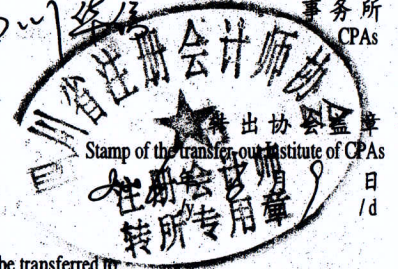 事务所
CPAs
四川省注册会计师协会
转出协会盖章
Stamp of the transfer-out Institute of CPAs
注册会计师
月 9 日
/d
转所专用章
be transferred to